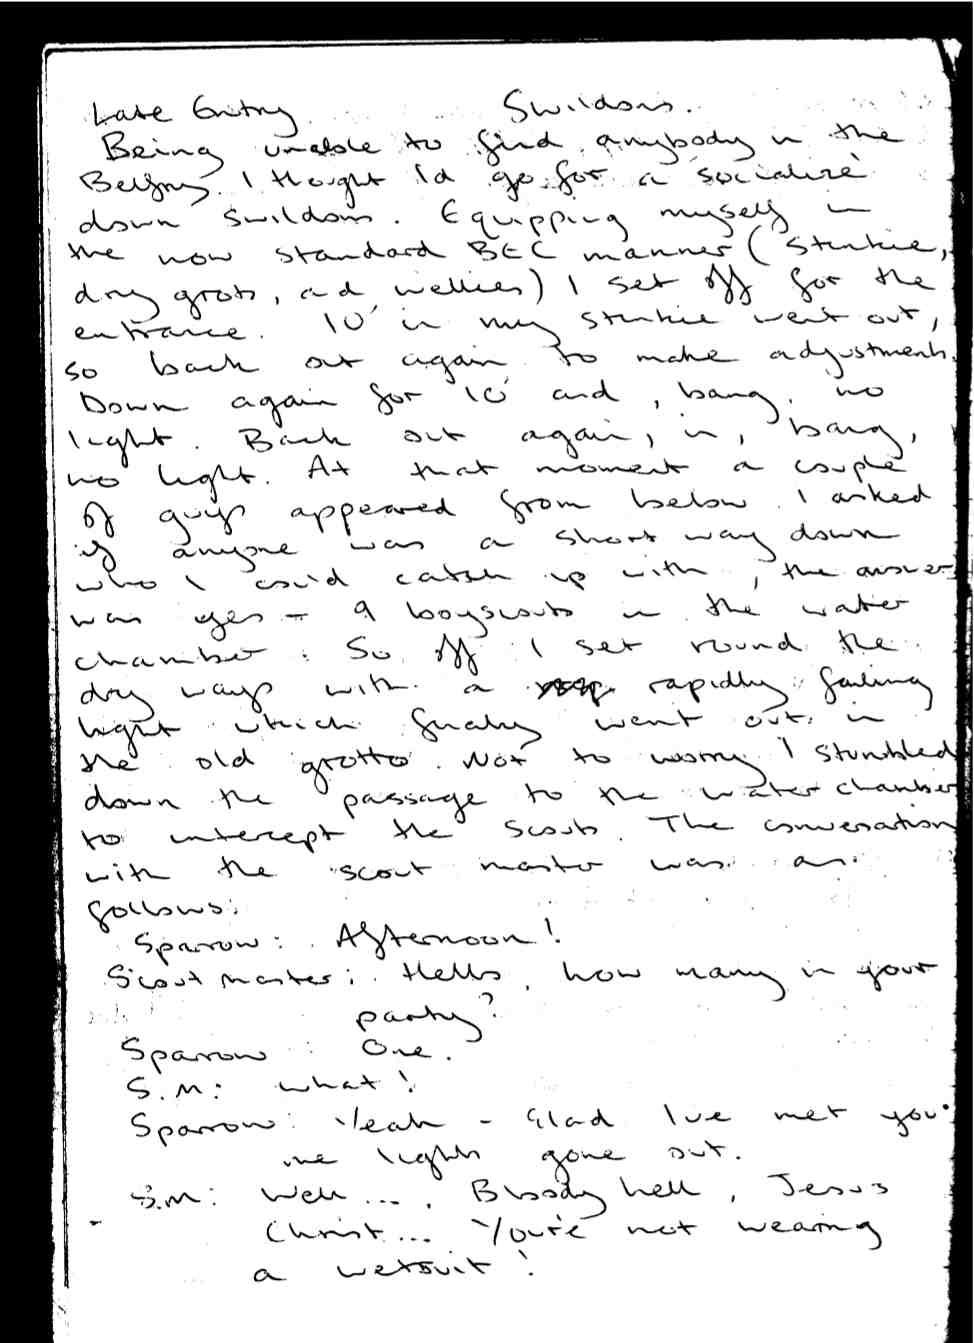 Late Entry Swildons.
Being unable to find anybody in the
Belfry I thought I'd go for a 'socialize'
down Swildons. Equipping myself in
the now standard BEC manner (Stinkie,
dry grots, and wellies) I set off for the
entrance. 10' in my stinkie went out,
so back out again to make adjustments.
Down again for 10' and, bang, no
light. Back out again, in, bang,
no light. At that moment a couple
of guys appeared from below. I asked
if anyone was a short way down
who I could catch up with, the answer
was yes - 9 boyscouts in the water
chamber. So off I set round the
dry ways with a rapidly failing
light which finally went out in
the old grotto. Not to worry I stumbled
down the passage to the water chamber
to intercept the scouts. The conversation
with the scout master was as
follows:
Sparrow: Afternoon!
Scout master: Hello, how many in your
party?
Sparrow: One.
S.M: What!
Sparrow: Yeah - Glad I've met you
me lights gone out.
S.M: Well.... Bloody hell, Jesus
Christ... You're not wearing
a wetsuit!